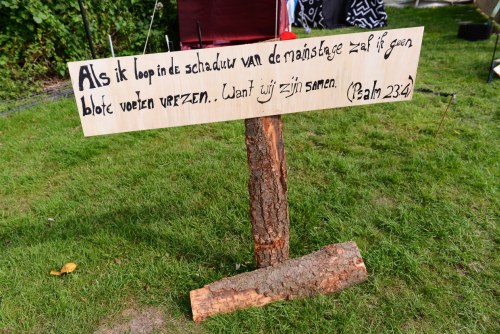 Als ik loop in de schaduw van de mainstage zal ik geen
blote voeten vrezen.. Want wij zijn samen. (Psalm 23:4)